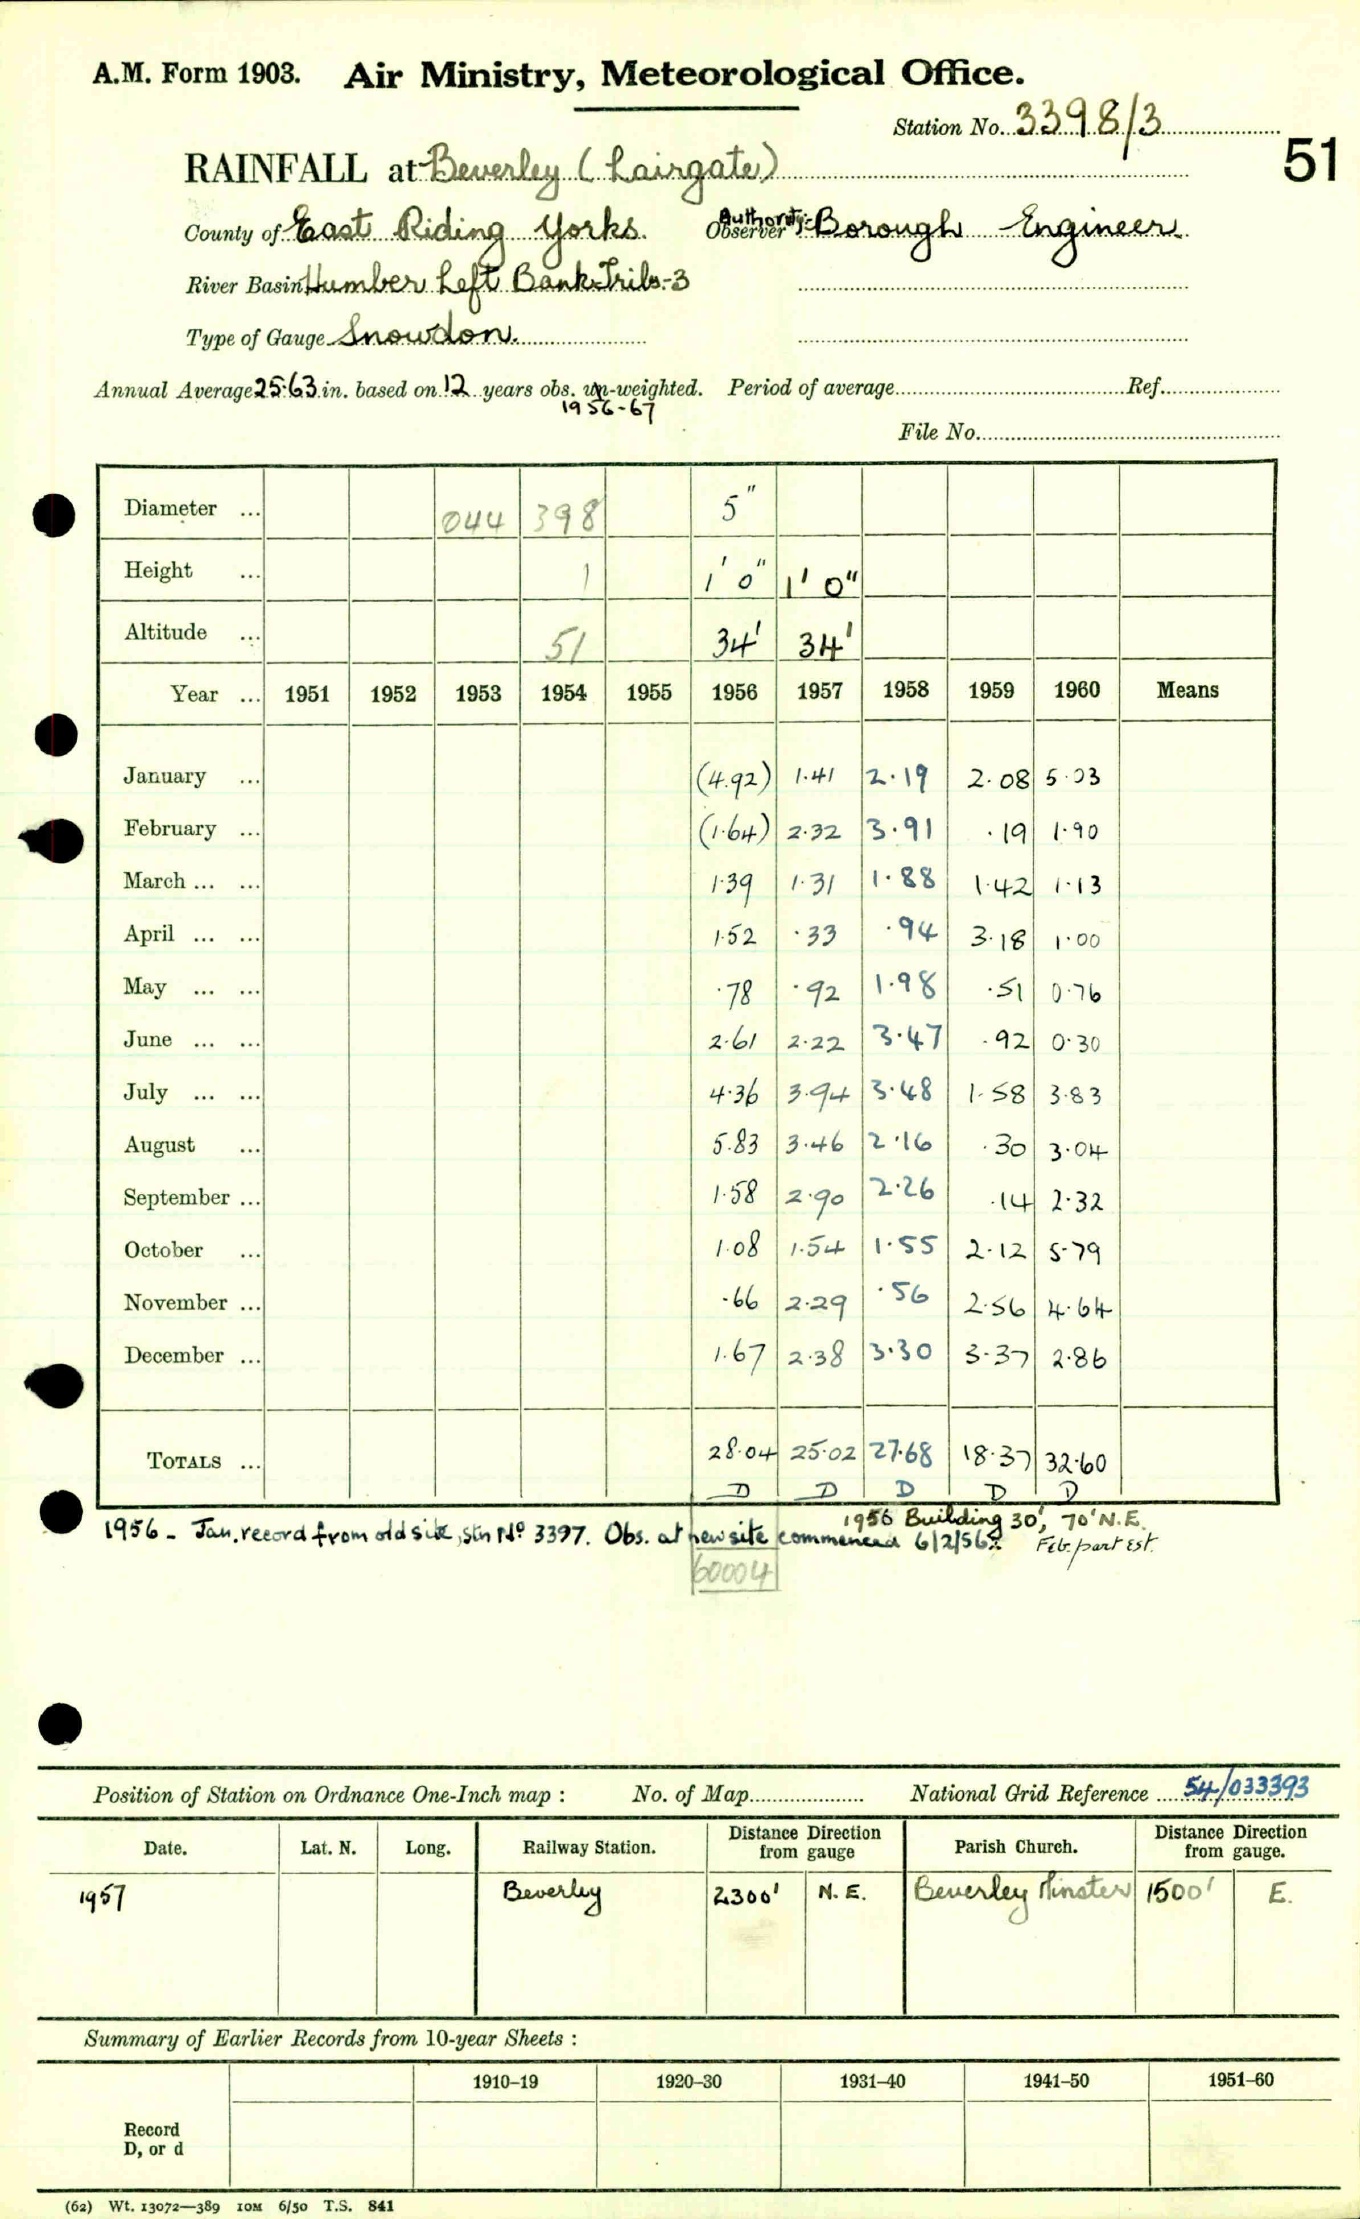 A.M. Form 1903. Air Ministry, Meteorological Office.
Station No. 3398/3
51
RAINFALL at Beverley (Lairgate)
County of East Riding Yorks. Observer Authority:- Borough Engineer
River Basin Humber Left Bank Tribs-3
Type of Gauge Snowdon.
Annual Average 25.63 in. based on 12 years obs. un-weighted. Period of average Ref.
1956-67
File No.
Diameter ... 044 398 5"
Height ... 1 1' 0" 1' 0"
Altitude ... 51 34' 34'
Year ... 1951 1952 1953 1954 1955 1956 1957 1958 1959 1960 Means
January ... (4.92) 1.41 2.19 2.08 5.03
February ... (1.64) 2.32 3.91 .19 1.90
March ... ... 1.39 1.31 1.88 1.42 1.13
April ... ... 1.52 .33 .94 3.18 1.00
May ... ... .78 .92 1.98 .51 0.76
June ... ... 2.61 2.22 3.47 .92 0.30
July ... ... 4.36 3.94 3.48 1.58 3.83
August ... 5.83 3.46 2.16 .30 3.04
September ... 1.58 2.90 2.26 .14 2.32
October ... 1.08 1.54 1.55 2.12 5.79
November ... .66 2.29 .56 2.56 4.64
December ... 1.67 2.38 3.30 3.37 2.86
TOTALS ... 28.04 25.02 27.68 18.37 32.60
D D D D D
1956 Building 30', 70' N.E.
1956 - Jan. record from old site, stn No 3397. Obs. at new site commenced 6/2/56. Feb. part est.
60004
Position of Station on Ordnance One-Inch map : No. of Map National Grid Reference 54/033393
Date. Lat. N. Long. Railway Station. Distance Direction from gauge Parish Church. Distance Direction from gauge.
1957 Beverley 2300' N.E. Beverley Minster 1500' E.
Summary of Earlier Records from 10-year Sheets :
1910–19 1920–30 1931–40 1941–50 1951–60
Record
D, or d
(62) Wt. 13072—389 10M 6/50 T.S. 841